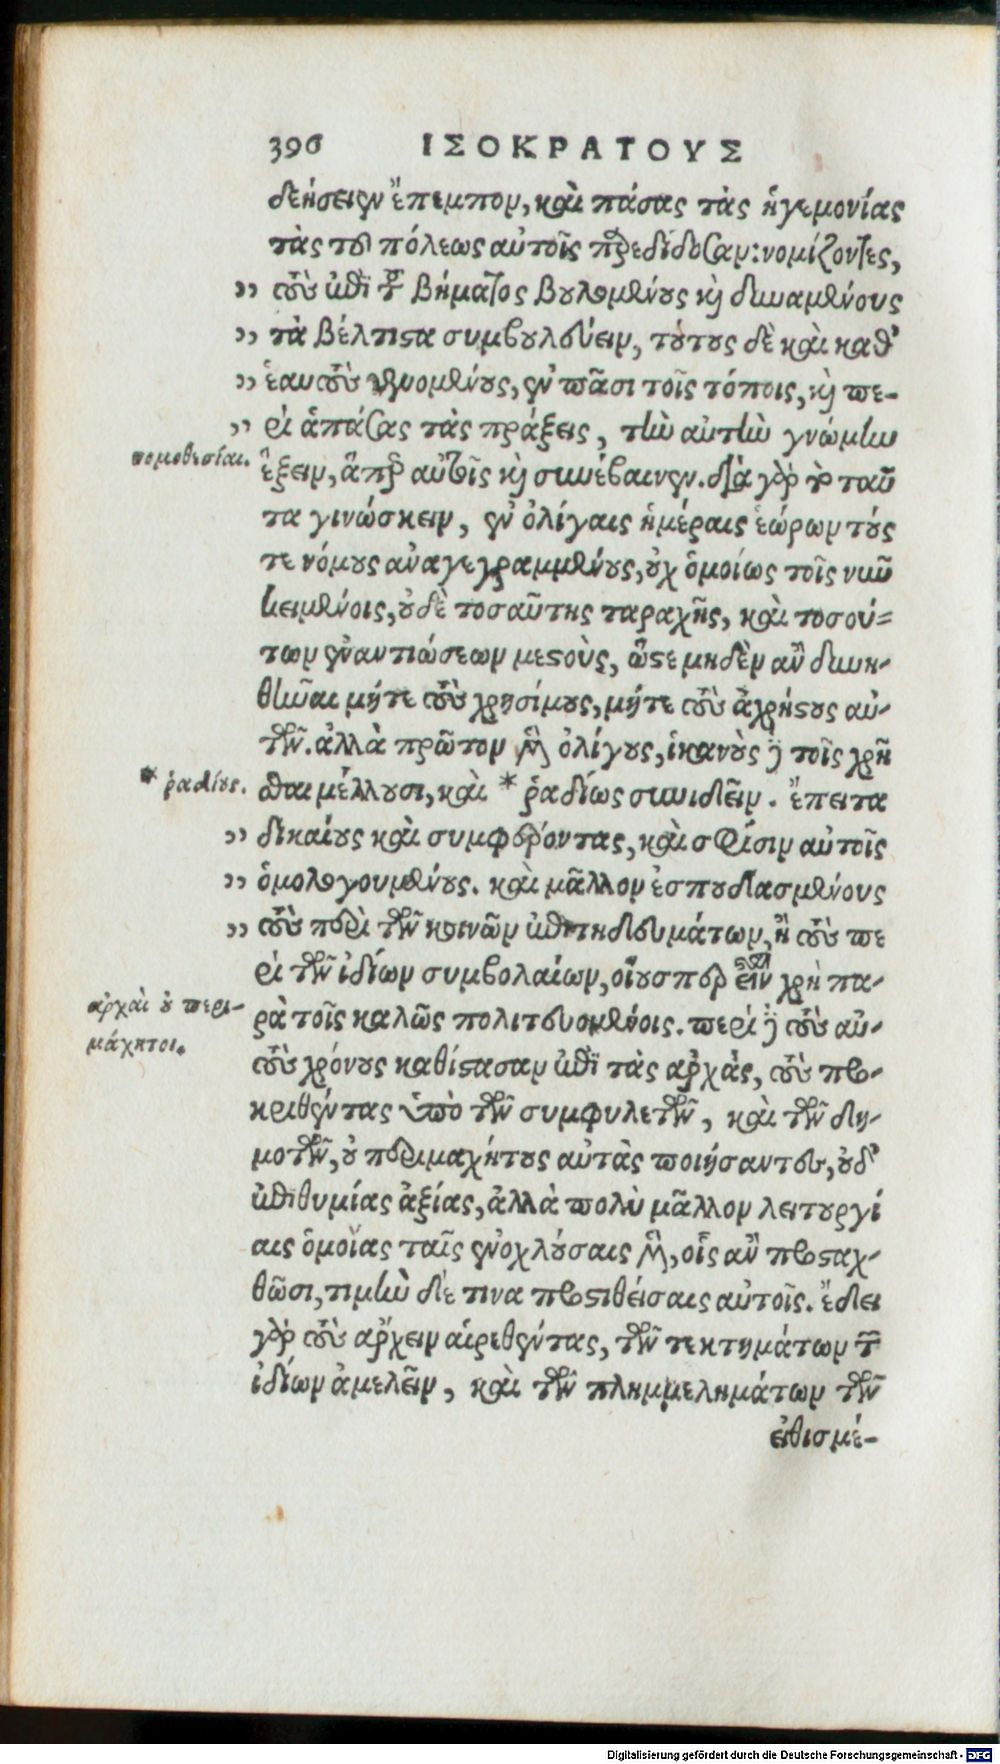 396 ΙΣΟΚΡΑΤΟΥΣ
δεήσειεν ἔπεμπον, καὶ πάσας τὰς ἡγεμονίας
τὰς τῆς πόλεως αὐτοῖς παρεδίδοσαν: νομίζοντες,
„ τοὺς ἐπὶ τοῦ βήματος βουλομένους καὶ δυναμένους
„ τὰ βέλτιστα συμβουλεύειν, τούτους δὲ καὶ καθ'
„ ἑαυτοὺς γενομένους, ἐν πᾶσι τοῖς τόποις, καὶ πε-
„ ρὶ ἁπάσας τὰς πράξεις, τὴν αὐτὴν γνώμην
νομοθεσίαι. ἕξειν, ἅπερ αὐτοῖς καὶ συνέβαινεν. διὰ γὰρ τὸ ταῦ
τα γινώσκειν, ἐν ὀλίγαις ἡμέραις ἑώρων τούς
τε νόμους ἀναγεγραμμένους, οὐχ ὁμοίως τοῖς νῦν
κειμένοις, οὐδὲ τοσαύτης ταραχῆς, καὶ τοσού-
των ἐναντιώσεων μεστοὺς, ὥστε μηδὲν ἂν δυνη-
θῆναι μήτε τοὺς χρησίμους, μήτε τοὺς ἀχρήστους αὐ-
τῶν. ἀλλὰ πρῶτον μὲν ὀλίγους, ἱκανοὺς δὲ τοῖς χρῆ
* ῥαδίους. σθαι μέλλουσι, καὶ * ῥαδίως συνιδεῖν. ἔπειτα
„ δικαίους καὶ συμφέροντας, καὶ σφίσιν αὐτοῖς
„ ὁμολογουμένους. καὶ μᾶλλον ἐσπουδασμένους
„ τοὺς περὶ τῶν κοινῶν ἐπιτηδευμάτων, ἢ τοὺς πε
ρὶ τῶν ἰδίων συμβολαίων, οἵους περ εἶναι χρὴ πα-
ἀρχαὶ οὐ περι- ρὰ τοῖς καλῶς πολιτευομένοις. περὶ δὲ τοὺς αὐ-
μάχητοι. τοὺς χρόνους καθίστασαν ἐπὶ τὰς ἀρχὰς, τοὺς προ-
κριθέντας ὑπὸ τῶν συμφυλετῶν, καὶ τῶν δη-
μοτῶν, οὐ περιμαχήτους αὐτὰς ποιήσαντες, οὐδ'
ἐπιθυμίας ἀξίας, ἀλλὰ πολὺ μᾶλλον λειτουργί
αις ὁμοίας ταῖς ἐνοχλούσαις μὲν, οἷς ἂν προσταχ-
θῶσι, τιμὴν δέ τινα προστιθείσαις αὐτοῖς. ἔδει
γὰρ τοὺς ἄρχειν αἱρεθέντας, τῶν τε κτημάτων τῶν
ἰδίων ἀμελεῖν, καὶ τῶν πλημμελημάτων τῶν
εἰθισμέ-
Digitalisierung gefördert durch die Deutsche Forschungsgemeinschaft - DFG